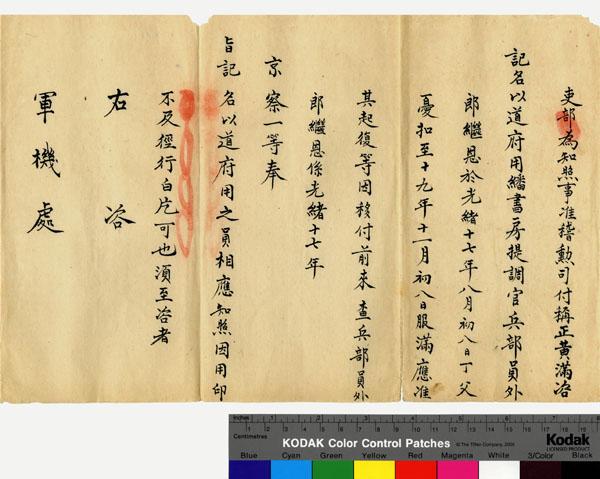 吏部為知照事准稽勳司付稱正黃滿洽
記名以道府用繙書房提調官兵部員外
郎繼恩於光緒十七年八月初八日丁父
憂扣至十九年十一月初八日服滿應准
其起復等因移付前來查兵部員外
郎繼恩係光緒十七年
京察一等奉
旨記名以道府用之員相應知照因用印
不及徑行白片可也須至咨者
右咨
軍機處
Inches
Centimetres
KODAK Color Control Patches
© The Tiffen Company, 2000
Kodak
LICENSED PRODUCT
Blue Cyan Green Yellow Red Magenta White 3/Color Black